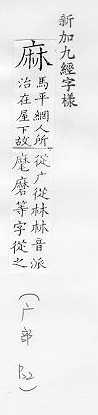 新加九經字樣
麻
馬平網人所
治在屋下故
從广從林林音派
麾磨等字從之
(广部